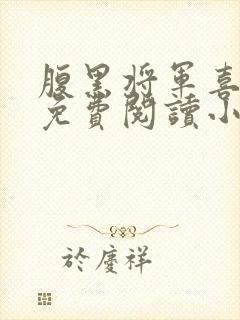 腹黑将军喜
免費閱讀小
於慶祥